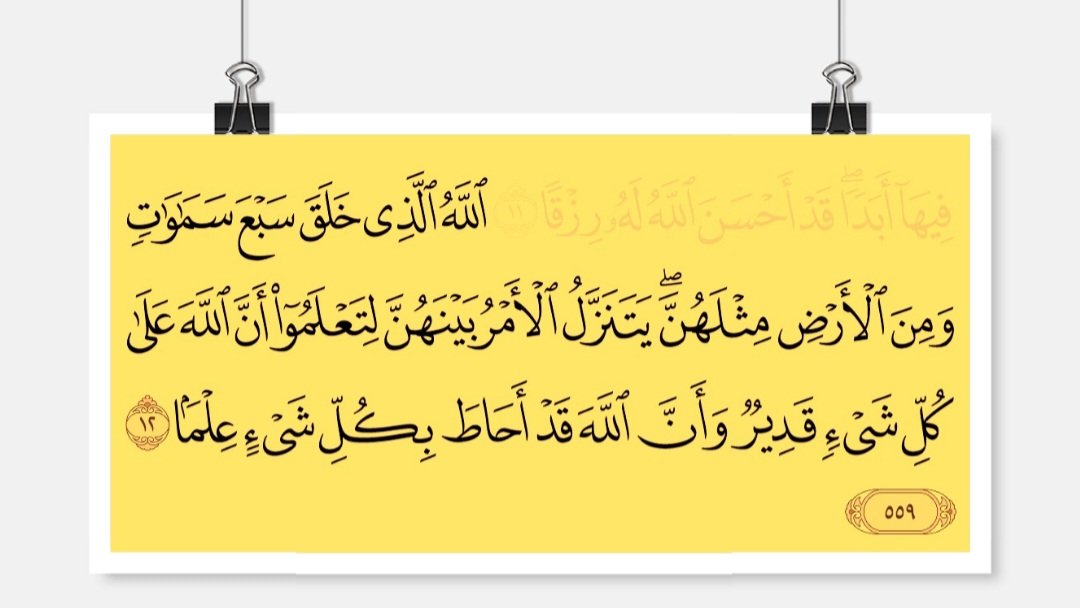 فِيهَآ أَبَدٗاۖ قَدۡ أَحۡسَنَ ٱللَّهُ لَهُۥ رِزۡقًا ١١ ٱللَّهُ ٱلَّذِى خَلَقَ سَبۡعَ سَمَٰوَٰتٖ
وَمِنَ ٱلۡأَرۡضِ مِثۡلَهُنَّۖ يَتَنَزَّلُ ٱلۡأَمۡرُ بَيۡنَهُنَّ لِتَعۡلَمُوٓاْ أَنَّ ٱللَّهَ عَلَىٰ
كُلِّ شَىۡءٖ قَدِيرٞ وَأَنَّ ٱللَّهَ قَدۡ أَحَاطَ بِكُلِّ شَىۡءٍ عِلۡمَۢا ١٢
٥٥٩